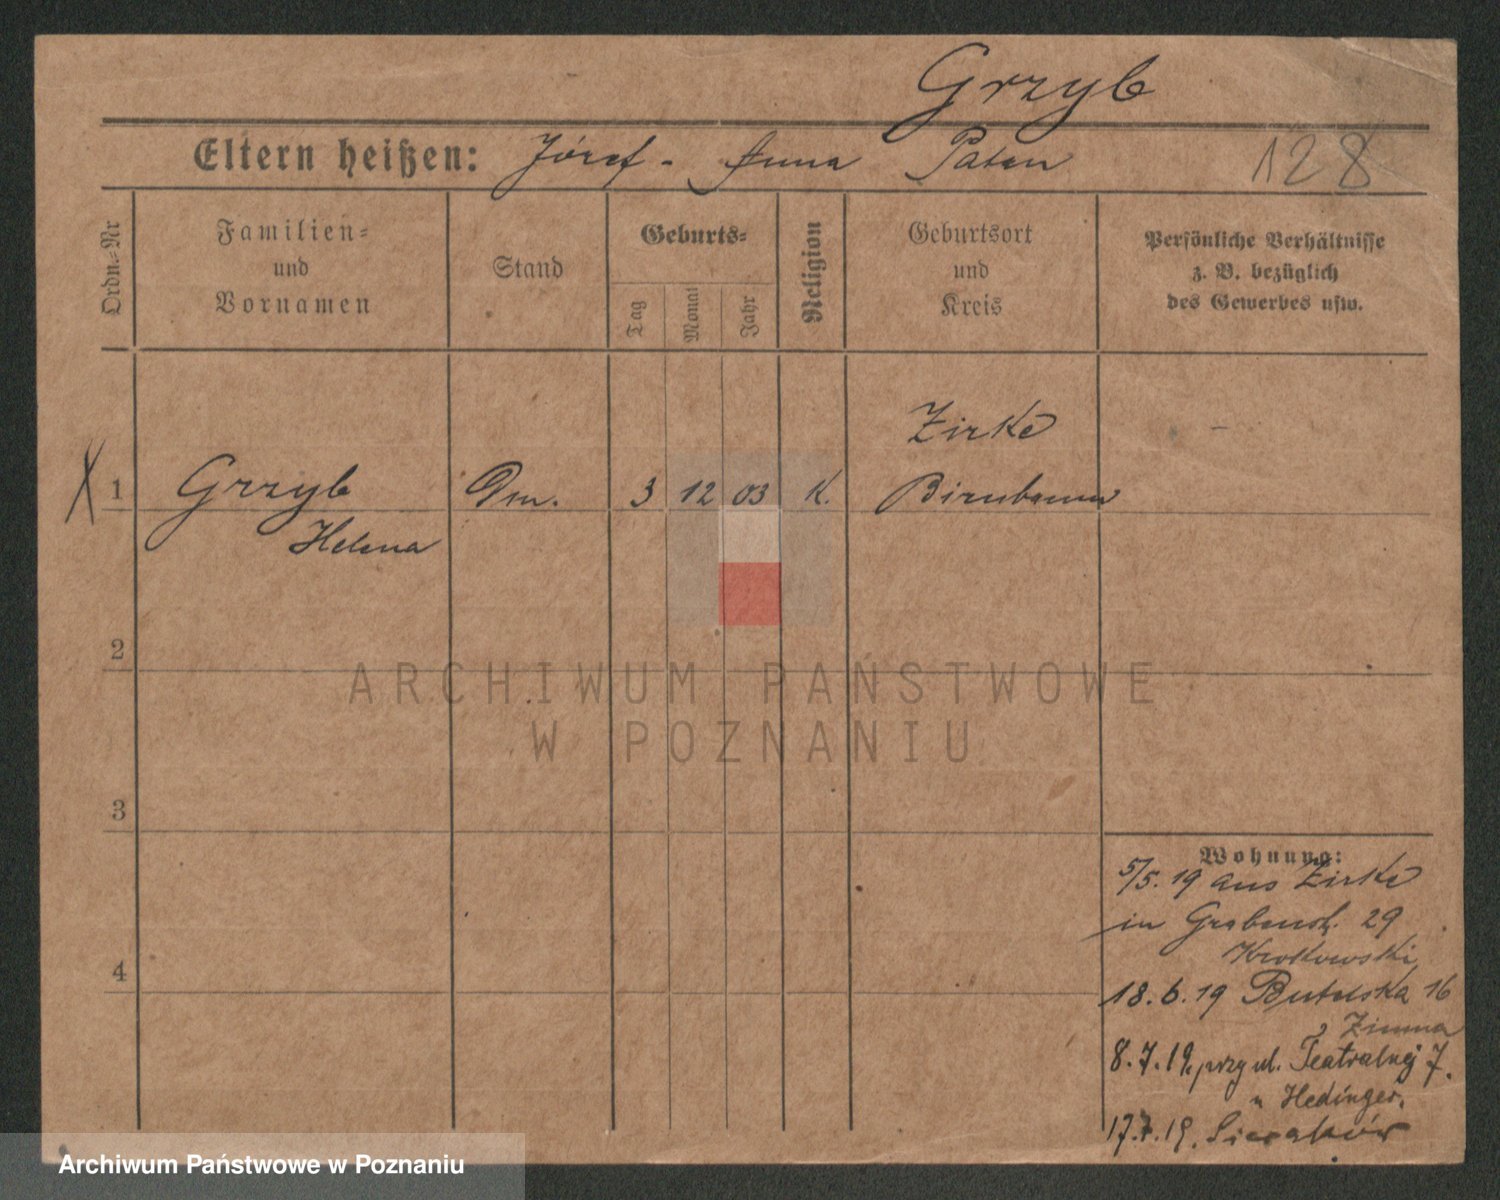 Grzyb
Eltern heißen: Józef - Anna Paten
128
Ordn.=Nr
Familien=
und
Vornamen
Stand
Geburts=
Tag
Monat
Jahr
Religion
Geburtsort
und
Kreis
Persönliche Verhältnisse
z. B. bezüglich
des Gewerbes usw.
Zirke
X 1 Grzyb 3 12 03 K. Birnbaum
Helena
2
3
4
Wohnung:
5/5. 19 aus Zirke
in Grabenst. 29
Krokowski
18.6.19 Butelska 16
Zimma
8.7.19. przy ul. Teatralnej 7.
u Hedinger.
17.7.19. Sieraków
ARCHIWUM PAŃSTWOWE
W POZNANIU
Archiwum Państwowe w Poznaniu